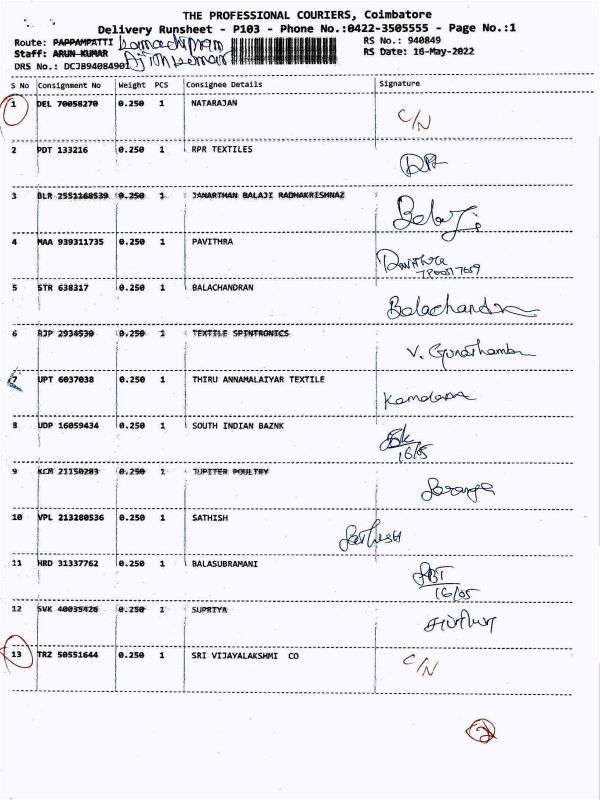 THE PROFESSIONAL COURIERS, Coimbatore
Delivery Runsheet - P103 - Phone No.:0422-3505555 - Page No.:1
Route: PAPPAMPATTI RS No.: 940849
Staff: ARUN KUMAR Ajithkumar RS Date: 16-May-2022
DRS No.: DCJ894084901
S No Consignment No Weight PCS Consignee Details Signature
1 DEL 70058270 0.250 1 NATARAJAN C/N
2 PDT 133216 0.250 1 RPR TEXTILES
3 BLR 2551168539 0.250 1 JANARTHAN BALAJI RADHAKRISHNAZ Balaji
4 MAA 939311735 0.250 1 PAVITHRA Pavithra
5 STR 638317 0.250 1 BALACHANDRAN Balachandran
6 RJP 2934530 0.250 1 TEXTILE SPINTRONICS
7 UPT 6037038 0.250 1 THIRU ANNAMALAIYAR TEXTILE
8 UDP 16059434 0.250 1 SOUTH INDIAN BAZNK
16/05
9 KCM 21150283 0.250 1 JUPITER POULTRY
10 VPL 213280536 0.250 1 SATHISH Sathish
11 HRD 31337762 0.250 1 BALASUBRAMANI
16/05
12 SVK 40035426 0.250 1 SUPRIYA சுப்ரியா
13 TRZ 50551644 0.250 1 SRI VIJAYALAKSHMI CO C/N
2